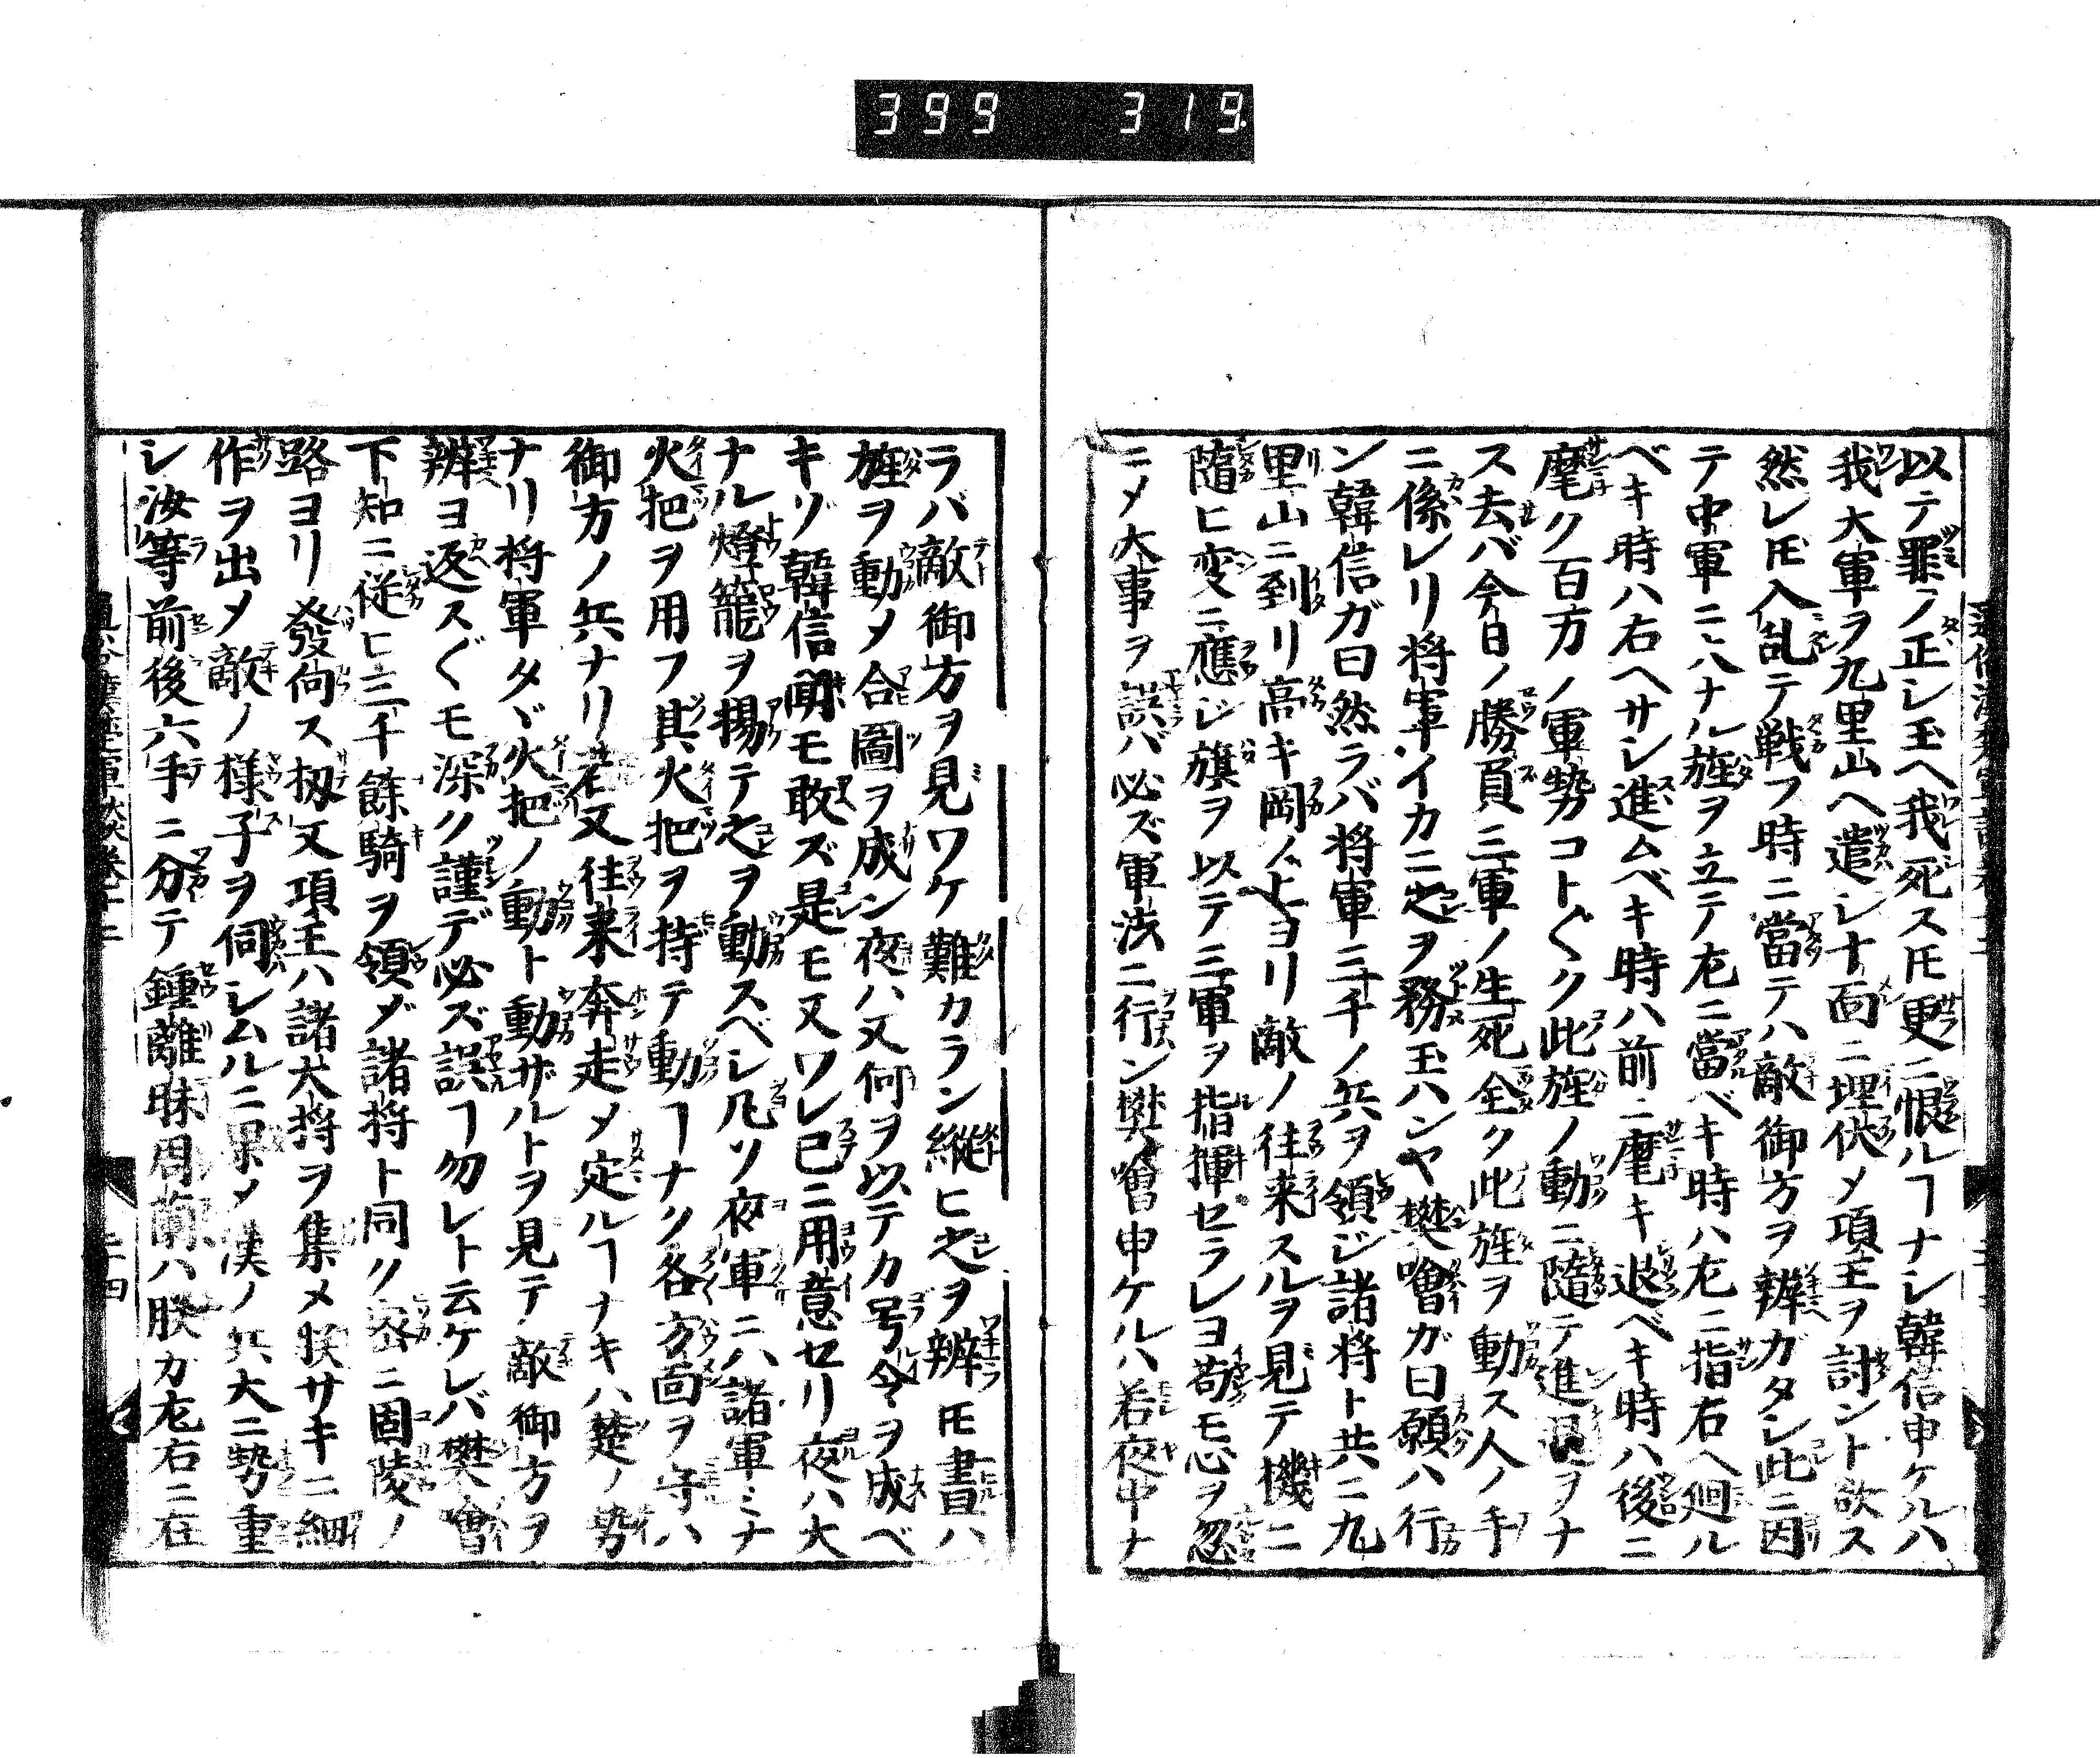 399 319
以テ罪ヲ正シ玉ヘ我死スㇳモ更ニ恨ルヿナシ韓信申ケルハ
我大軍ヲ九里山ヘ遣シ十面ニ埋伏メ項王ヲ討ント欲ス
然レㇳモ入乱テ戦フ時ニ當テハ敵御方ヲ辨ガタシ此ニ因
テ中軍ニ大ナル旌ヲ立テ左ニ當ベキ時ハ左ニ指右ヘ廻ル
ベキ時ハ右ヘサシ進ムベキ時ハ前ニ麾キ退ベキ時ハ後ニ
麾ク百方ノ軍勢コト〲ク此旌ノ動ニ隨テ進退ヲナ
ス去バ今日ノ勝負三軍ノ生死全ク此旌ヲ動ス人ノ手
ニ係レリ将軍イカニ之ヲ務玉ハンヤ樊噲ガ曰願ハ行
ン韓信ガ曰然ラバ将軍三千ノ兵ヲ領ジ諸将ト共ニ九
里山ニ到リ高キ岡ノ上ヨリ敵ノ往来スルヲ見テ機ニ
隨ヒ変ニ應ジ旗ヲ以テ三軍ヲ指揮セラレヨ苟モ心ヲ忽
ニメ大事ヲ誤バ必ズ軍法ニ行ン樊噲申ケルハ若夜中ナ
ラバ敵御方ヲ見ワケ難カラン縦ヒ之ヲ辨ㇳモ晝ハ
旌ヲ動メ合圖ヲ成ン夜ハ又何ヲ以テカ号令ヲ成ベ
キゾ韓信聞モ敢ズ是モ又ワレ已ニ用意セリ夜ハ大
ナル燈籠ヲ揚テ之ヲ動スベシ凡ソ夜軍ニハ諸軍ミナ
火把ヲ用フ其火把ヲ持テ動ヿナク各方面ヲ守ハ
御方ノ兵ナリ若又往来奔走メ定ルヿナキハ楚ノ勢
ナリ将軍タヾ火把ノ動ト動ザルトヲ見テ敵御方ヲ
辨ヨ返ス〲モ深ク謹デ必ズ誤ヿ勿レト云ケレバ樊噲
下知ニ従ヒ三千餘騎ヲ領ダ諸将ト同ク密ニ固陵ノ
路ヨリ發向ス扨又項王ハ諸大将ヲ集メ朕サキニ細
作ヲ出メ敵ノ様子ヲ伺シムルニ果メ漢ノ兵大ニ勢重
シ汝等前後六手ニ分テ鍾離昧周蘭ハ朕カ左右ニ在